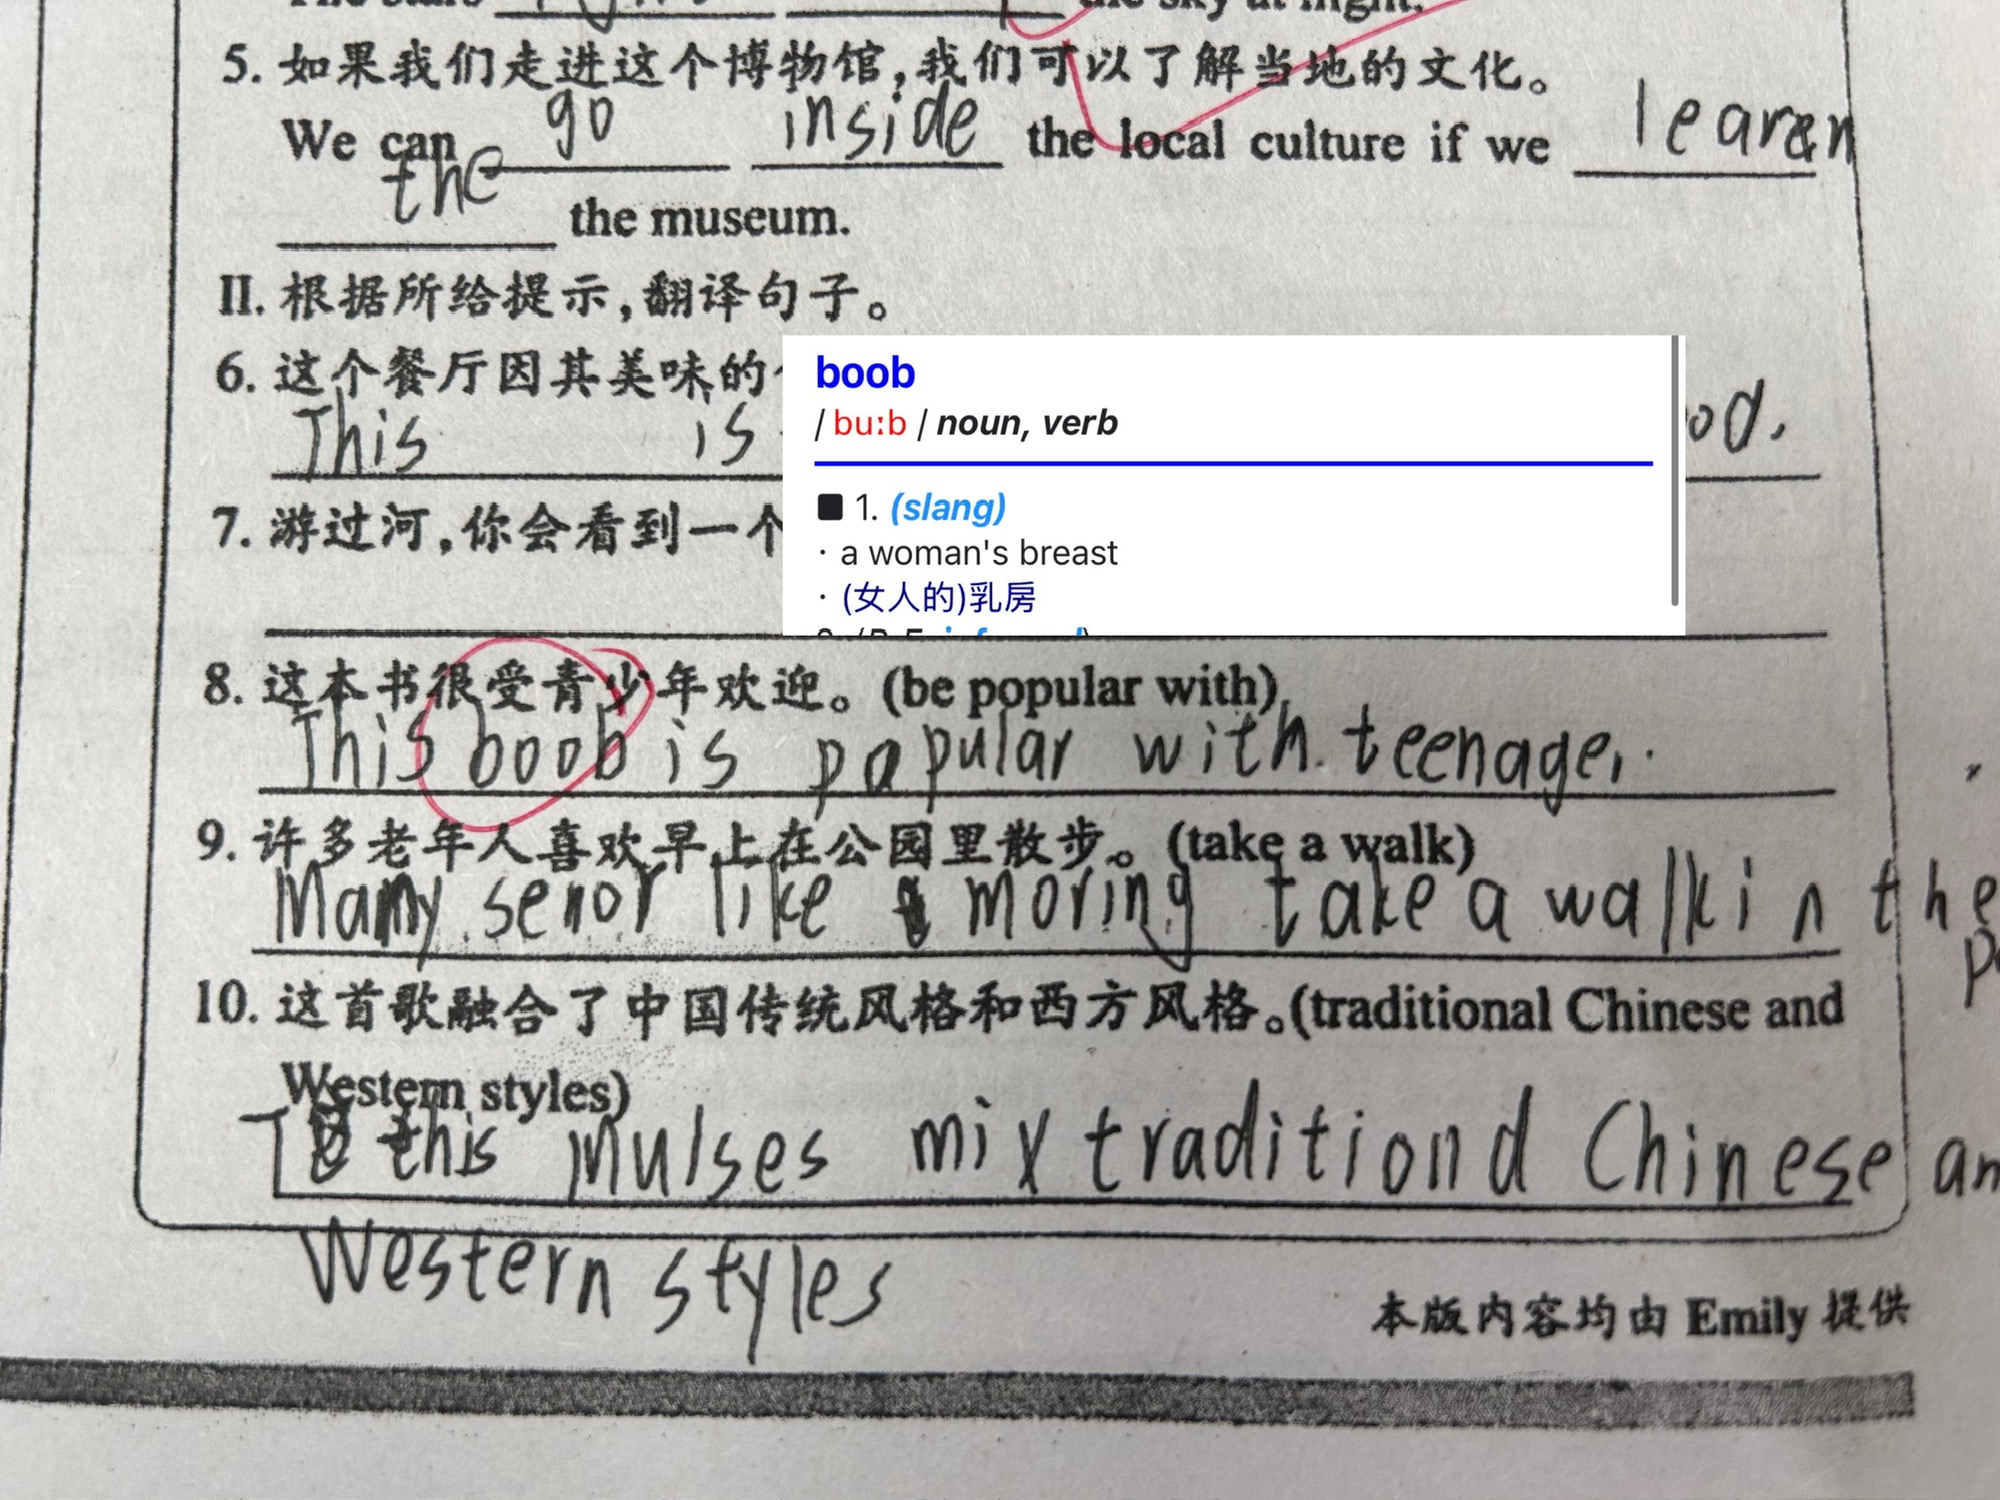 the sky at night.
5. 如果我们走进这个博物馆,我们可以了解当地的文化。
We can go inside the local culture if we learn
the the museum.
II. 根据所给提示,翻译句子。
6. 这个餐厅因其美味的
This is ood.
7. 游过河,你会看到一个
boob
/ buːb / noun, verb
1. (slang)
· a woman's breast
· (女人的)乳房
8. 这本书很受青少年欢迎。(be popular with)
This boob is popular with teenager.
9. 许多老年人喜欢早上在公园里散步。(take a walk)
Many senor like moring take a walk in the
10. 这首歌融合了中国传统风格和西方风格。(traditional Chinese and
Western styles)
this mulses mix traditiond Chinese an
Western styles
本版内容均由 Emily 提供